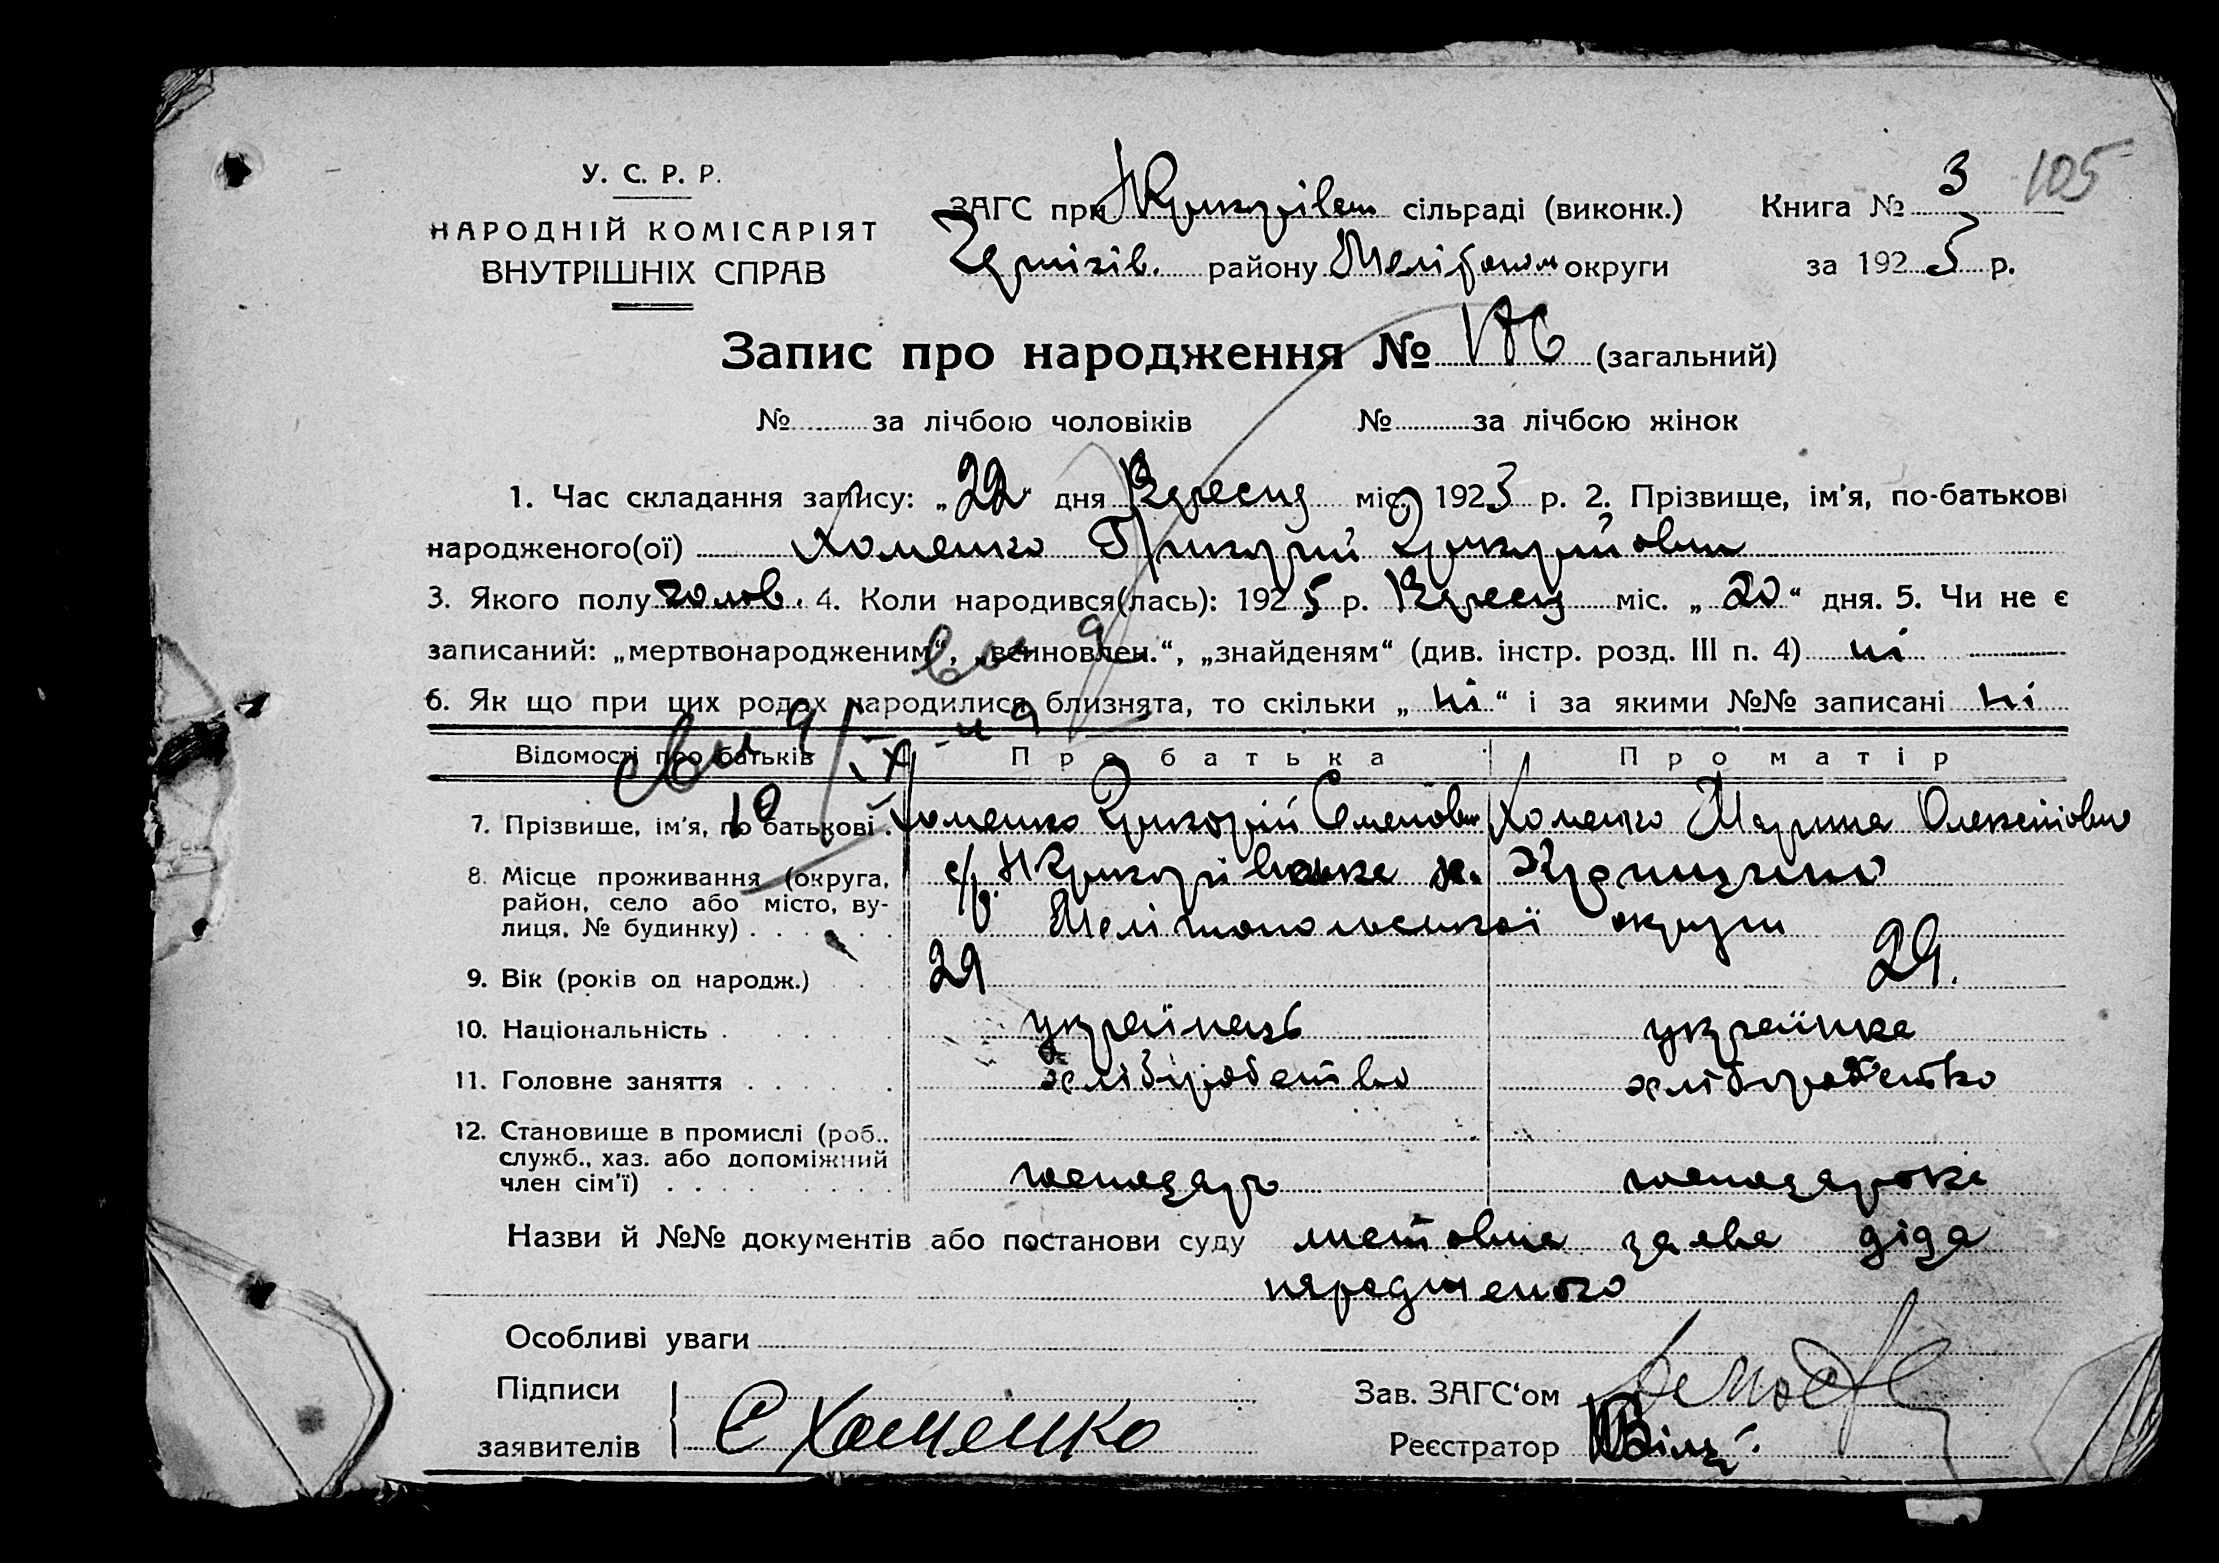 105
У. С. Р. Р.
НАРОДНІЙ КОМІСАРІЯТ
ВНУТРІШНІХ СПРАВ
ЗАГС при сільраді (виконк.) Книга № 3
Чернігів. району округи за 1925 р.
Запис про народження № (загальний)
№ за лічбою чоловіків № за лічбою жінок
1. Час складання запису: „22“ дня Вересня міс. 1925 р. 2. Прізвище, ім'я, по-батькові
народженого(ої) Хоменко Григорій Григорійович
3. Якого полу чолов. 4. Коли народився(лась): 1925 р. Вересня міс. „20“ дня. 5. Чи не є
записаний: „мертвонародженим“, „всиновлен.“, „знайденям“ (див. інстр. розд. III п. 4) ні
6. Як що при цих родах народилися близнята, то скільки „ні“ і за якими №№ записані ні
Відомості про батьків Про батька Про матір
7. Прізвище, ім'я, по батькові. Хоменко Григорій Семенович Хоменко Марина Олексіївна
8. Місце проживання (округа,
район, село або місто, ву-
лиця, № будинку) Мелітопольської округи
9. Вік (років од народж.) 29 29.
10. Національність українець українка
11. Головне заняття хліборобство хліборобство
12. Становище в промислі (роб.,
служб., хаз. або допоміжний
член сім'ї) господарь господарка
Назви й №№ документів або постанови суду заява діда
Особливі уваги
Підписи
заявителів Є Хоменко
Зав. ЗАГС'ом
Реєстратор